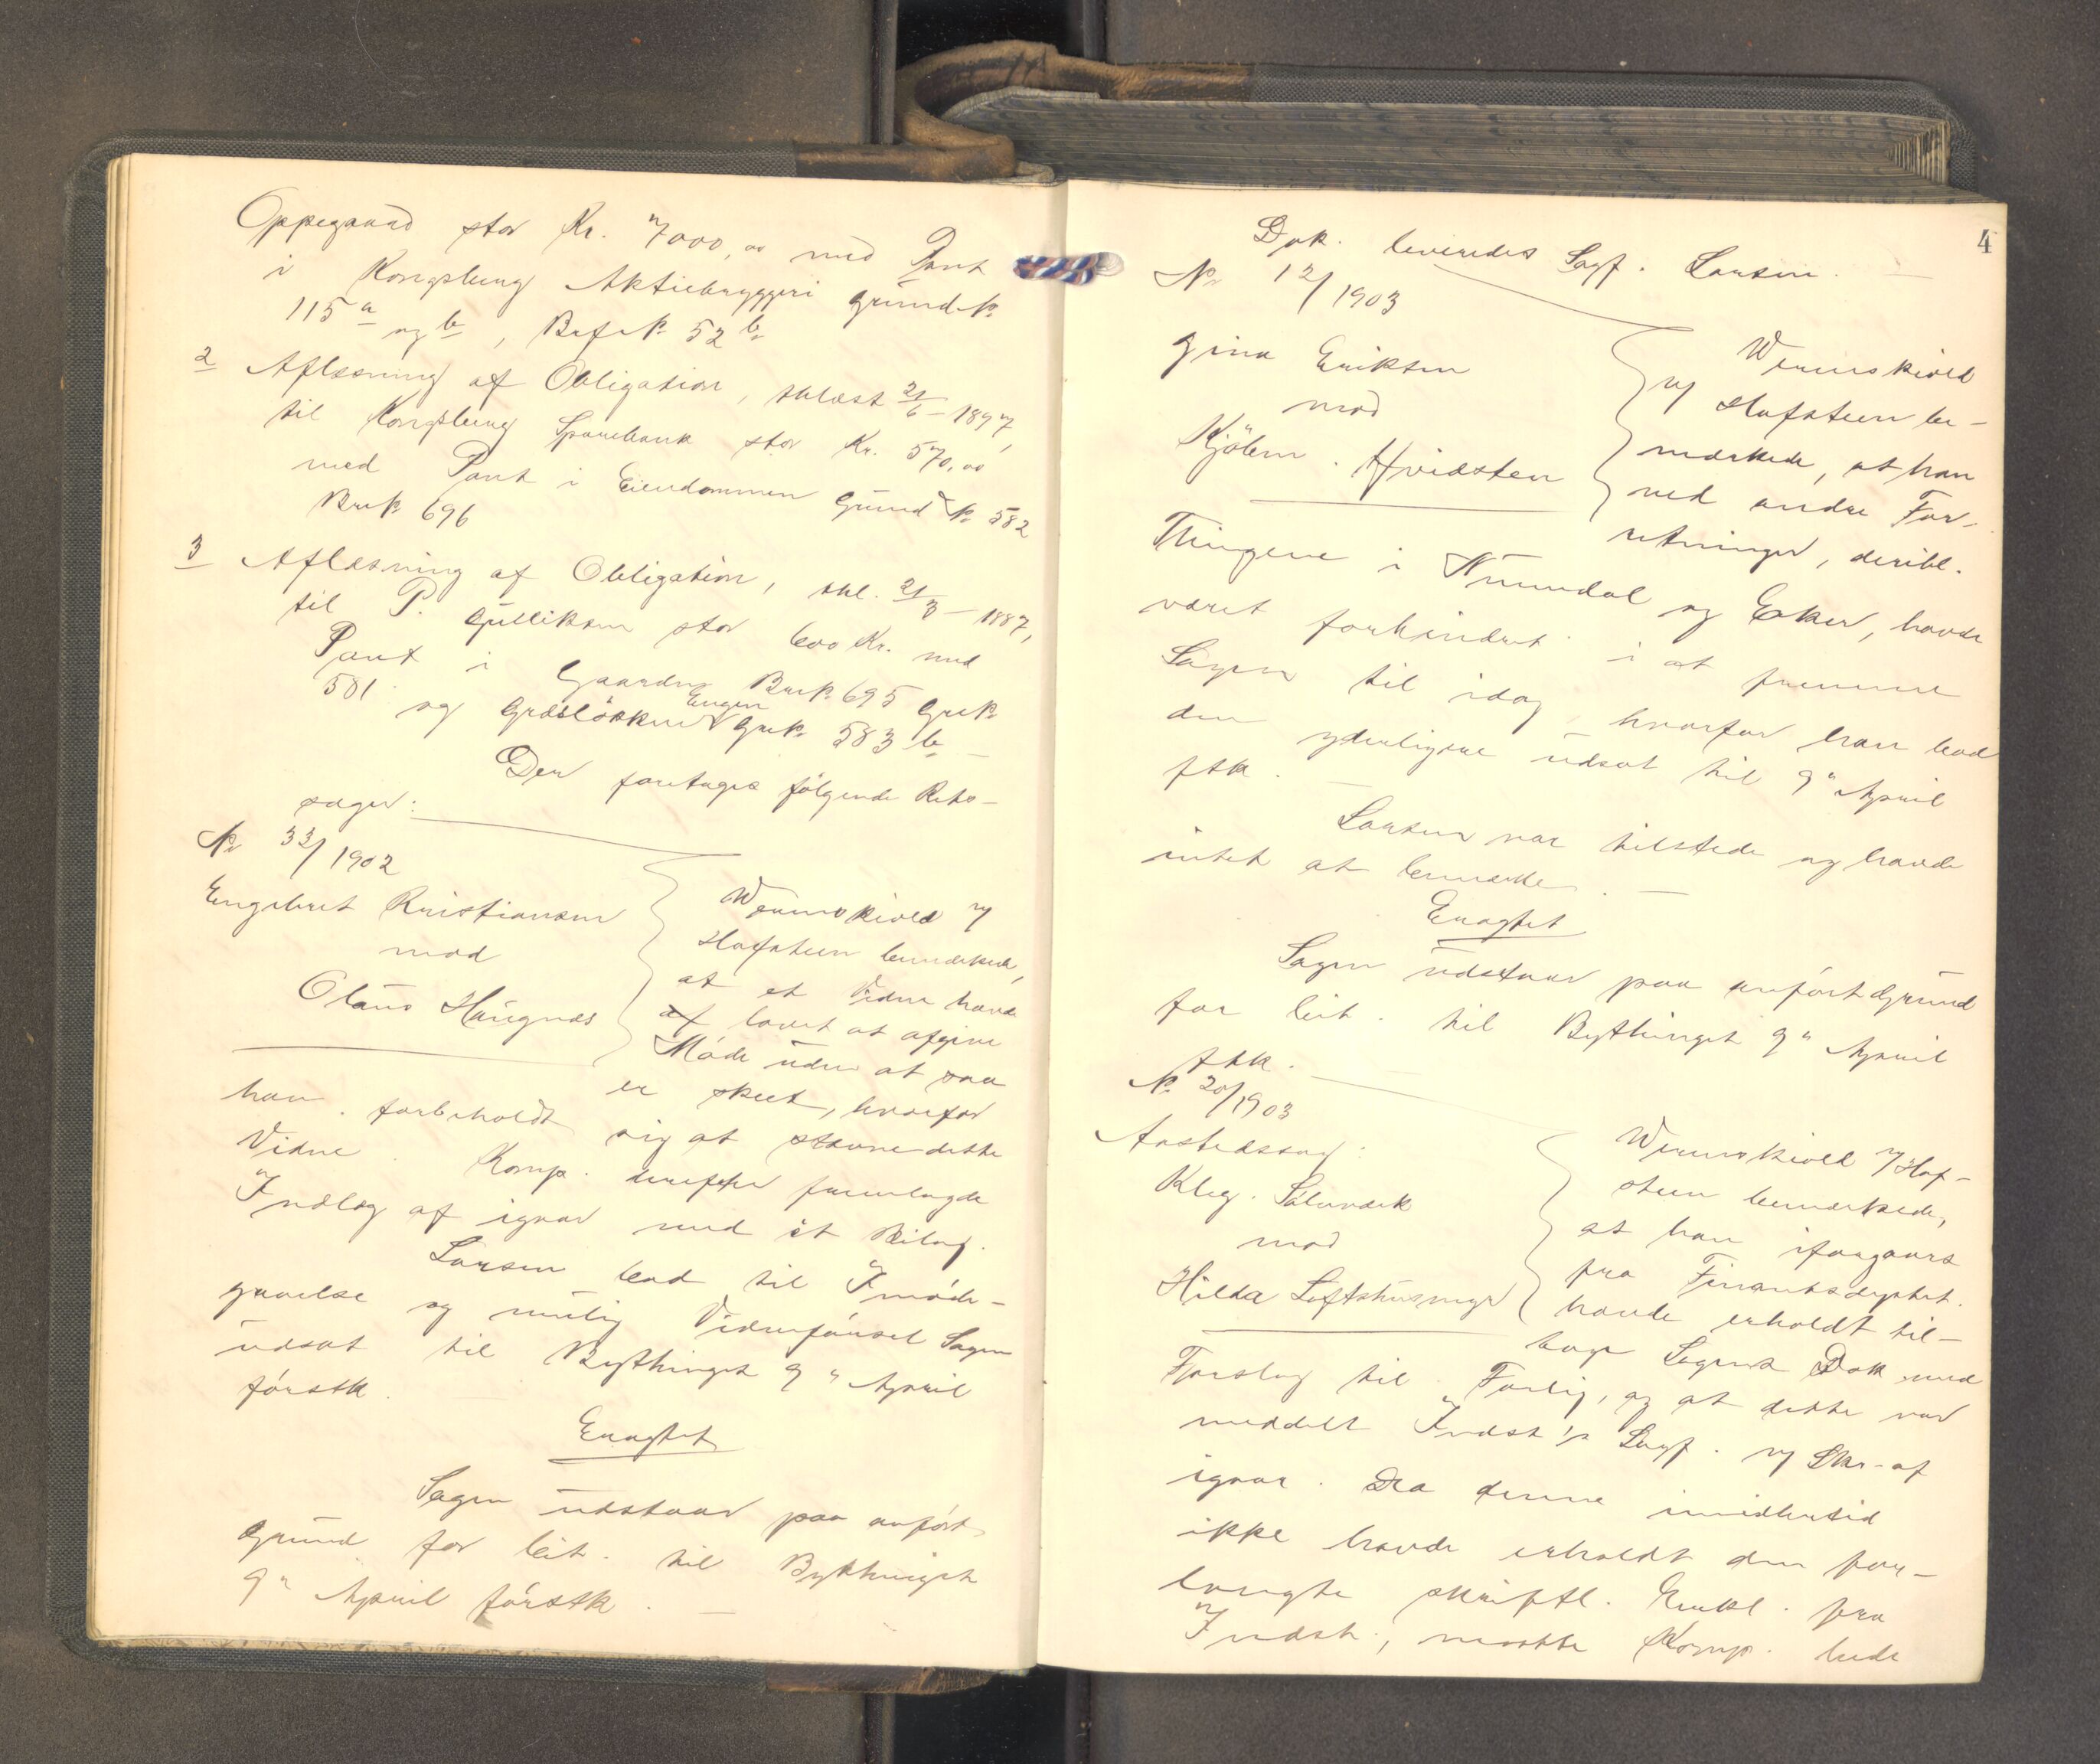 Oppegaard stor Kr. 7000,00 med Pant
i Kongsberg Aktiebryggeri Grundk
115 a og b, Brefsk 52 b
2 Aflæsning af Obligation, thlæst 21/6 - 1897,
til Kongsberg Sparebank stor Kr. 570,00
med Pant i Eiendommen Grund No 582
Brnk 696
3 Aflæsning af Obligation, thl. 21/3 - 1887,
til P. Gulliksen stor 600 Kr. med
Pant i Gaarden Brnk 695 Grnk
581 og Græsløkken Engen Grnk. 583 b
Der foretages følgende Rets-
sager:
No 33/1902
Engebret Kristiansen
mod
Olaus Haugnæs
Wermskiold v/
Hofsteen bemærkede,
at et Vidne havde
af lovet at afgive
Møde uden at saa
er skeet, hvorfor
han forbeholdt sig at stævne dette
Vidne. Komp. derefter fremlagde
Indlæg af igaar med et Bilag.
Larsen bad til Imøde-
gaaelse og mulig Vidneførsel Sagen
udsat til Bythinget 9de April
førstk.
Eragtet
Sagen udstaar paa anført
Grund for leit. til Bythinget
9de April førstk. -
4
Dok. leveredes Sagf. Larsen. -
No 12/1903
Gina Eriksen
mod
Kjøbm. Hvidsten
Wermskiold
v/ Hofsteen be-
mærkede, at han
ved andre For-
retninger, deribl.
Thingene i Numedal og Eker, havde
været forhindret i at fremme
Sagen til idag, hvorfor han bad
den yderligere udsat til 9de April
fstk. -
Larsen var tilstede og havde
intet at bemærke. -
Eragtet
Sagen udstaar paa anført Grund
for leit. til Bythinget 9de April
fstk.
No 20/1903
Aastedssag:
Kbg. Sølvværk
mod
Hilda Loftshusmyr
Wermskiold v/ Hof-
steen bemærkede,
at han iforgaars
fra Finantsdeptet.
havde erholdt til-
bage Sagens Dok. med
Forslag til Forlig, og at dette var
meddelt Indst's Sagf. v/ Skr. af
igaar. Da denne imidlertid
ikke havde erholdt den for-
langte skriftl. Erkl. fra
Indst., maatte Komp. bede